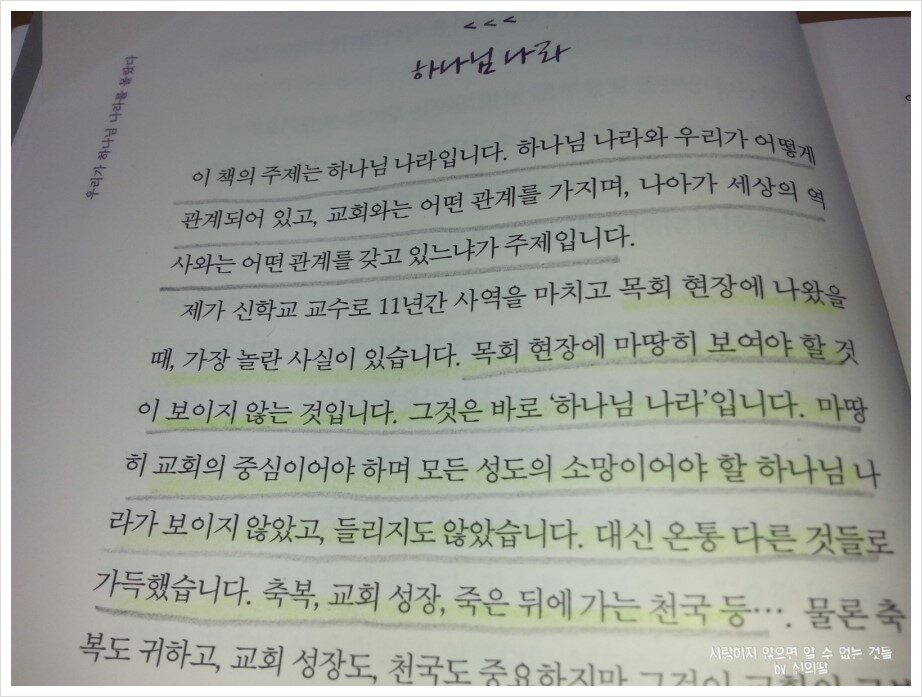 <<<
하나님 나라
우리가 하나님 나라를 몰랐다
이 책의 주제는 하나님 나라입니다. 하나님 나라와 우리가 어떻게
관계되어 있고, 교회와는 어떤 관계를 가지며, 나아가 세상의 역
사와는 어떤 관계를 갖고 있느냐가 주제입니다.
제가 신학교 교수로 11년간 사역을 마치고 목회 현장에 나왔을
때, 가장 놀란 사실이 있습니다. 목회 현장에 마땅히 보여야 할 것
이 보이지 않는 것입니다. 그것은 바로 ‘하나님 나라’입니다. 마땅
히 교회의 중심이어야 하며 모든 성도의 소망이어야 할 하나님 나
라가 보이지 않았고, 들리지도 않았습니다. 대신 온통 다른 것들로
가득했습니다. 축복, 교회 성장, 죽은 뒤에 가는 천국 등…. 물론 축
복도 귀하고, 교회 성장도, 천국도 중요하지만 그것이
사랑하지 않으면 알 수 없는 것들
by 신의딸